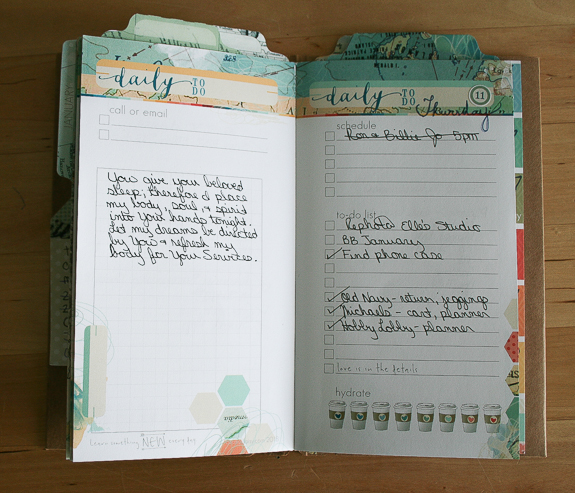 daily TO DO
call or email
You give your beloved
sleep; therefore I place
my body, soul, & spirit
into Your hands tonight.
Let my dreams be directed
by You & refresh my
body for Your Services.
learn something NEW every day
daily TO DO
11
Thursday
schedule
Ron & Billie Jo 5pm
to-do list
Rephoto Elle's Studio
BB January
Find phone case
Old Navy - return, jeggings
Michaels - cart, planner
Hobby Lobby - planner
love is in the details
hydrate